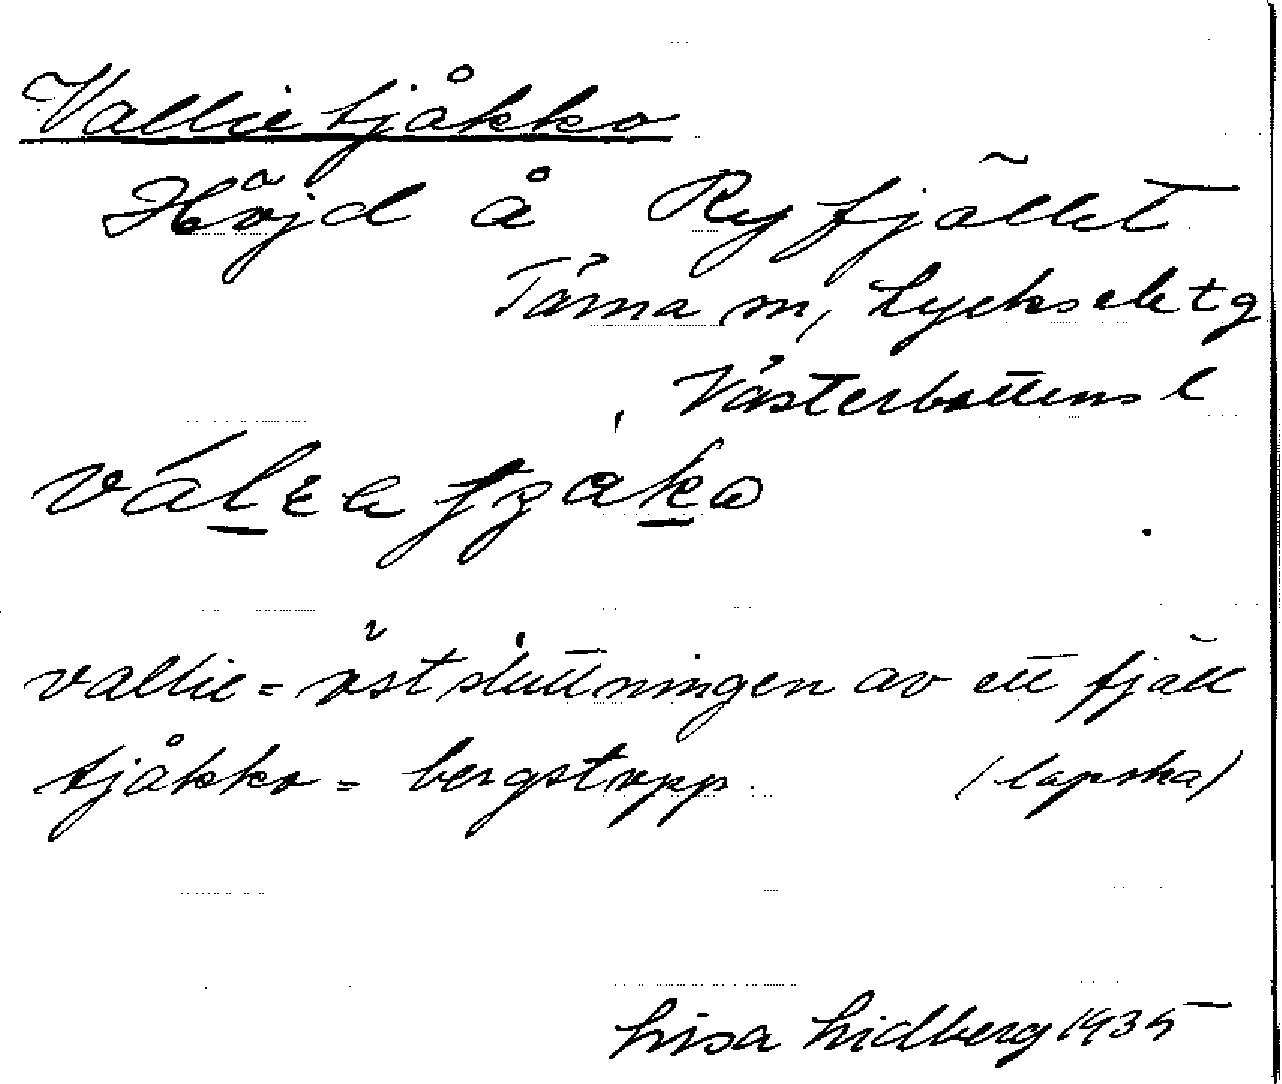 Vallietjåkko
Höjd å Ryfjället
Tärna sn, Lycksele tg
Västerbottens l
vallie = östsluttningen av ett fjäll
tjåkko = bergstopp. (lapska)
Lisa Lidberg 1935